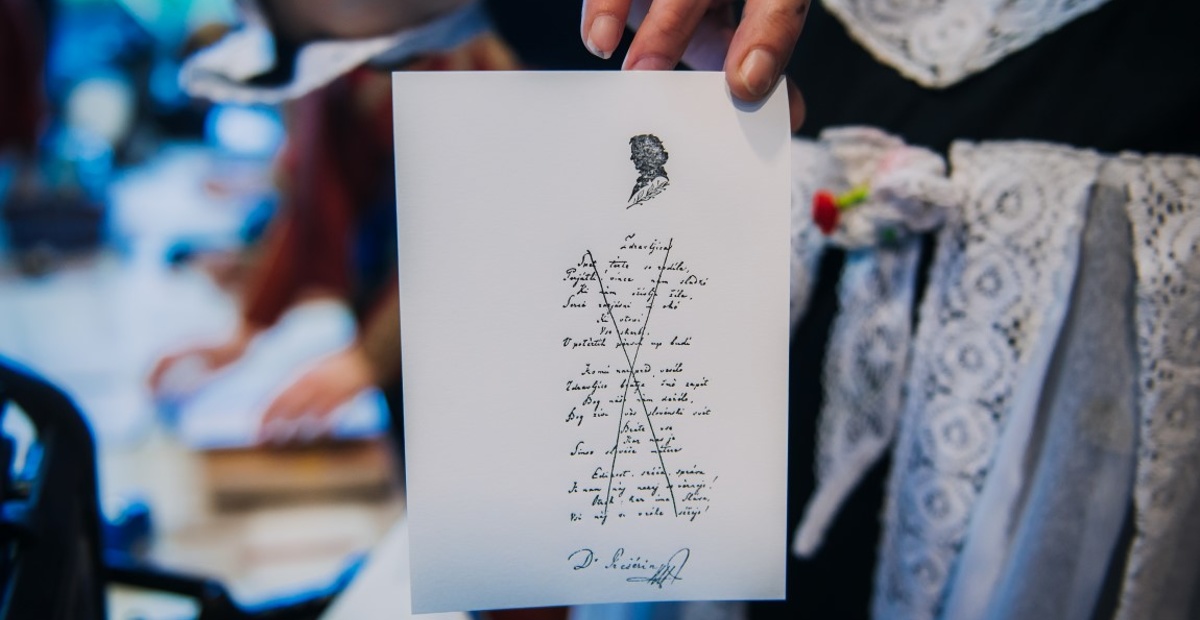 Zdravljica
Spet terte so rodile,
Perjatli, vince nam sladkó
Ki nam oživlja žile,
Sercé razjásni in okó
Ki vtopi
Vse skerbi
V potertih persih up budi
Komú narpred veselo
Zdravljico bratje čmò zapét
Bog našo nam deželo,
Bog živi ves slovénski svét
Brate vse
Kar nas je
Sinov slovéče matere
Edinost, sréča, správa
K nam naj nazaj se vernejo!
Otrók, kar ima Sláva,
Vsi naj si v róke sežejo!
Dr Prešérin